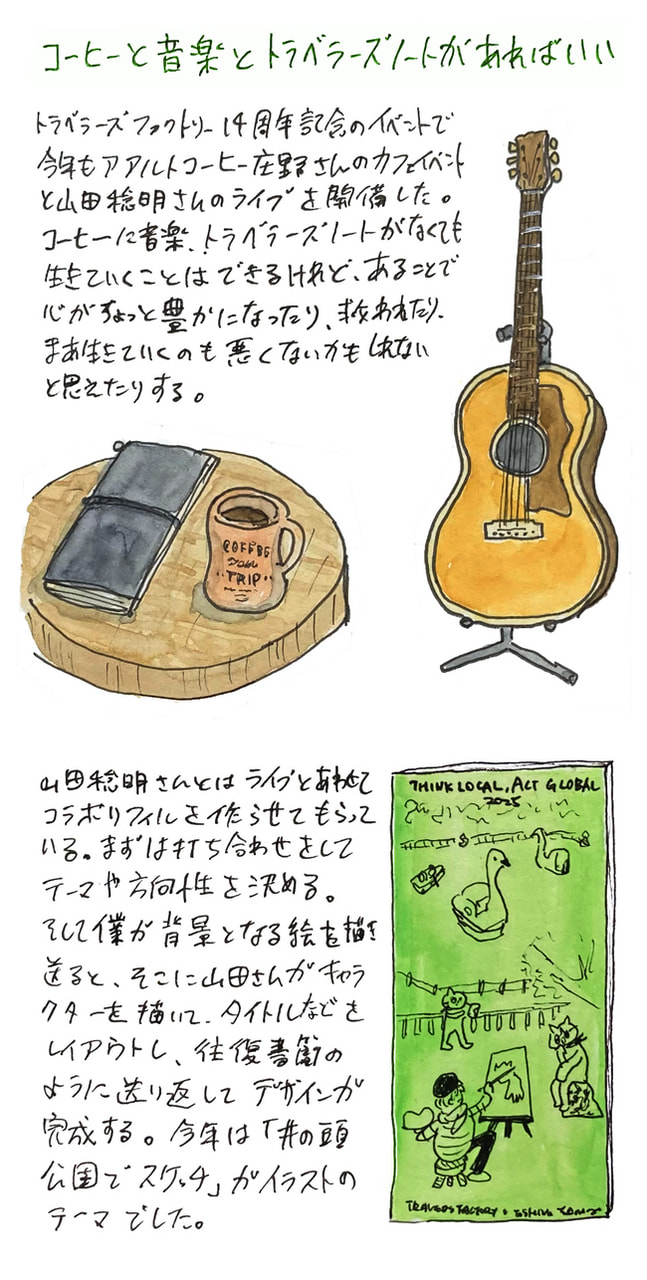 コーヒーと音楽とトラベラーズノートがあればいい
トラベラーズファクトリー14周年記念のイベントで
今年もアアルトコーヒー庄野さんのカフェイベント
と山田稔明さんのライブを開催した。
コーヒーに音楽、トラベラーズノートがなくても
生きていくことはできるけれど、あることで
心がちょっと豊かになったり、救われたり、
まあ生きていくのも悪くないかもしれない
と思えたりする。
COFFEE
YOUR
"TRIP"
山田稔明さんとはライブとあわせて
コラボリフィルを作らせてもらって
いる。まずは打ち合わせをして
テーマや方向性を決める。
そして僕が背景となる絵を描き
送ると、そこに山田さんがキャラ
クターを描いて、タイトルなどを
レイアウトし、往復書簡の
ように送り返してデザインが
完成する。今年は「井の頭
公園でスケッチ」がイラストの
テーマでした。
THINK LOCAL, ACT GLOBAL
2025